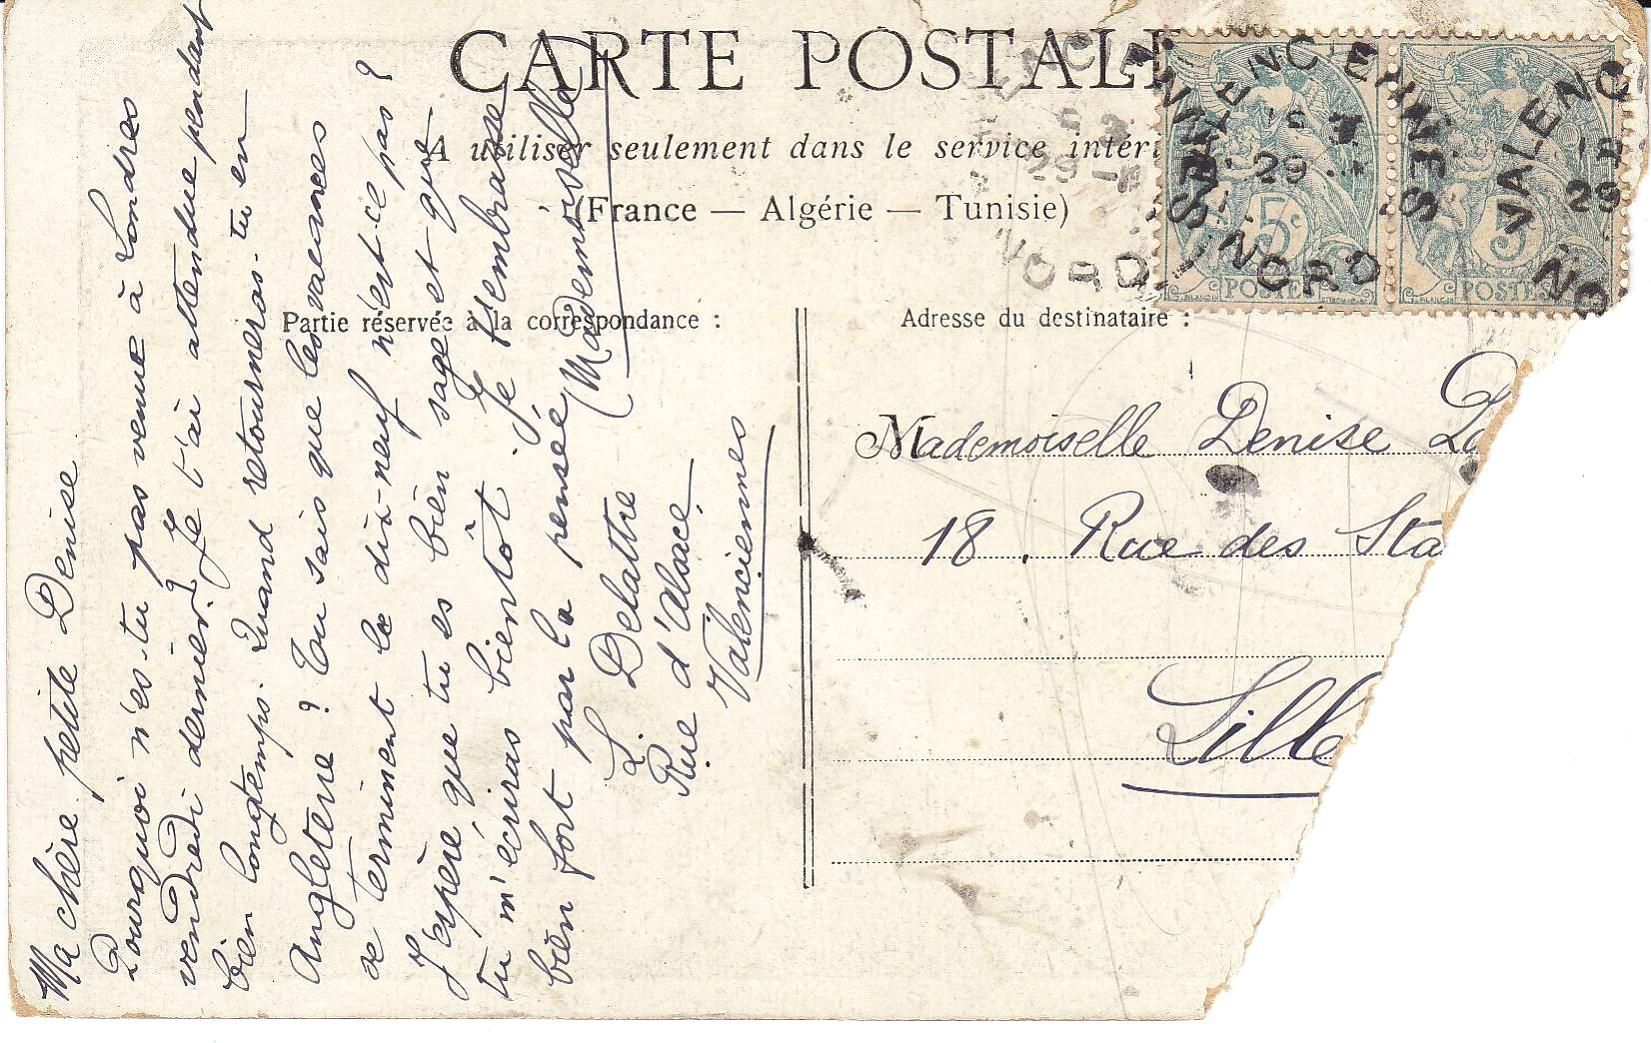 CARTE POSTALE
A utiliser seulement dans le service intéri
(France — Algérie — Tunisie)
Partie réservée à la correspondance :
Adresse du destinataire :
Ma chère petite Denise
Pourquoi n'es-tu pas venue à Londres
vendredi dernier? Je t'ai attendue pendant
bien longtemps. Quand retourneras-tu en
Angleterre? Tu sais que les vacances
se terminent le dix-neuf n'est-ce pas?
J'espère que tu es bien sage et que
tu m'écriras bientôt. Je t'embrasse
bien fort par la pensée (Mademoiselle
L. Delattre
Rue d'Alsace
Valenciennes
Mademoiselle Denise
18, Rue des Sta
Lille
VALENCIENNES
29
NORD
5c
POSTES
VALENC
29
NO
5
POSTES
29
NORD